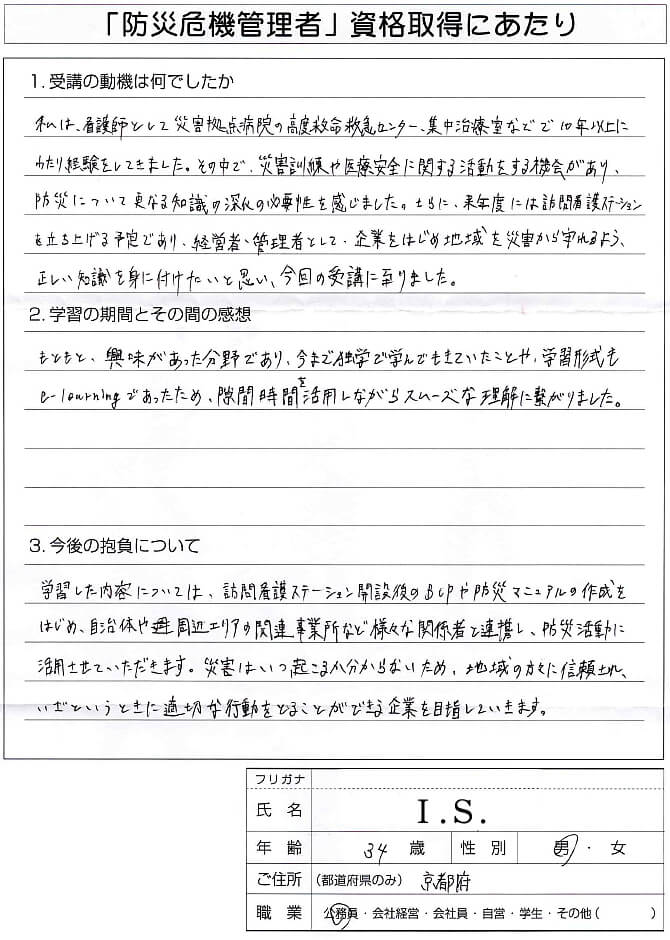 「防災危機管理者」資格取得にあたり
1. 受講の動機は何でしたか
私は、看護師として災害拠点病院の高度救命救急センター、集中治療室などで10年以上に
わたり経験をしてきました。その中で、災害訓練や医療安全に関する活動をする機会があり、
防災について更なる知識の深化の必要性を感じました。さらに、来年度には訪問看護ステーション
を立ち上げる予定であり、経営者、管理者として、企業をはじめ地域を災害から守れるよう、
正しい知識を身に付けたいと思い、今回の受講に至りました。
2. 学習の期間とその間の感想
もともと、興味があった分野であり、今まで独学で学んでもきていたことや、学習形式も
e-learningであったため、隙間時間を活用しながらスムーズな理解に繋がりました。
3. 今後の抱負について
学習した内容については、訪問看護ステーション開設後のBCPや防災マニュアルの作成を
はじめ、自治体や周辺エリアの関連事業所など様々な関係者と連携し、防災活動に
活用させていただきます。災害はいつ起こるか分からないため、地域の方々に信頼され、
いざというときに適切な行動をとることができる企業を目指していきます。
フリガナ
氏名 I.S.
年齢 34 歳 性別 男・女
ご住所 (都道府県のみ) 京都府
職業 公務員・会社経営・会社員・自営・学生・その他( )